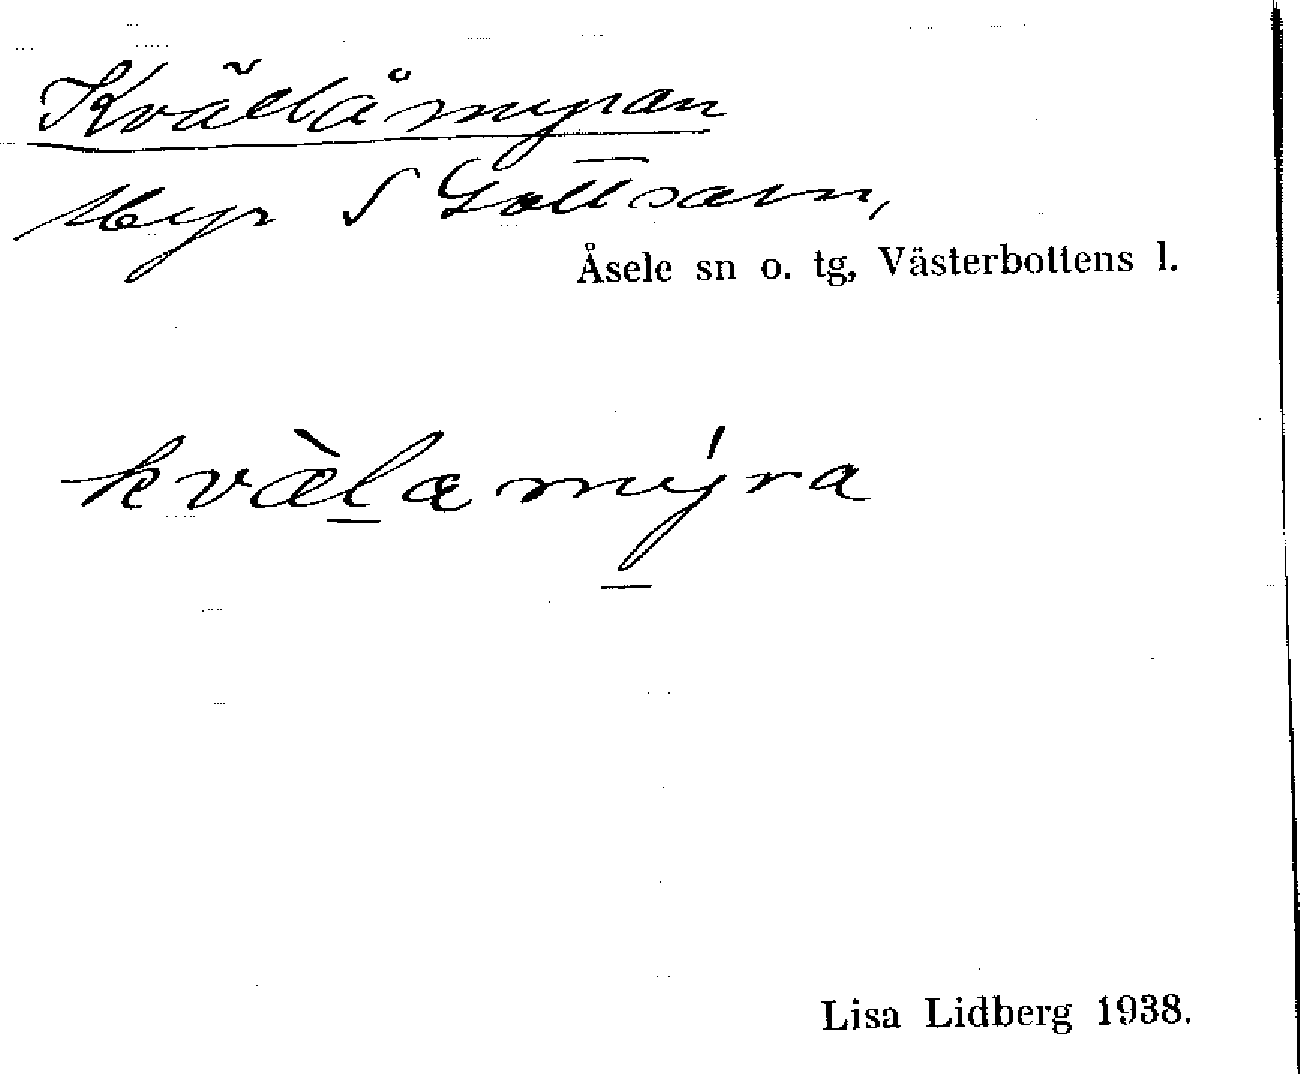 Kvällåmyran
Myr S Gottsam,
Åsele sn o. tg, Västerbottens l.
kvæ̀lamýra
Lisa Lidberg 1938.